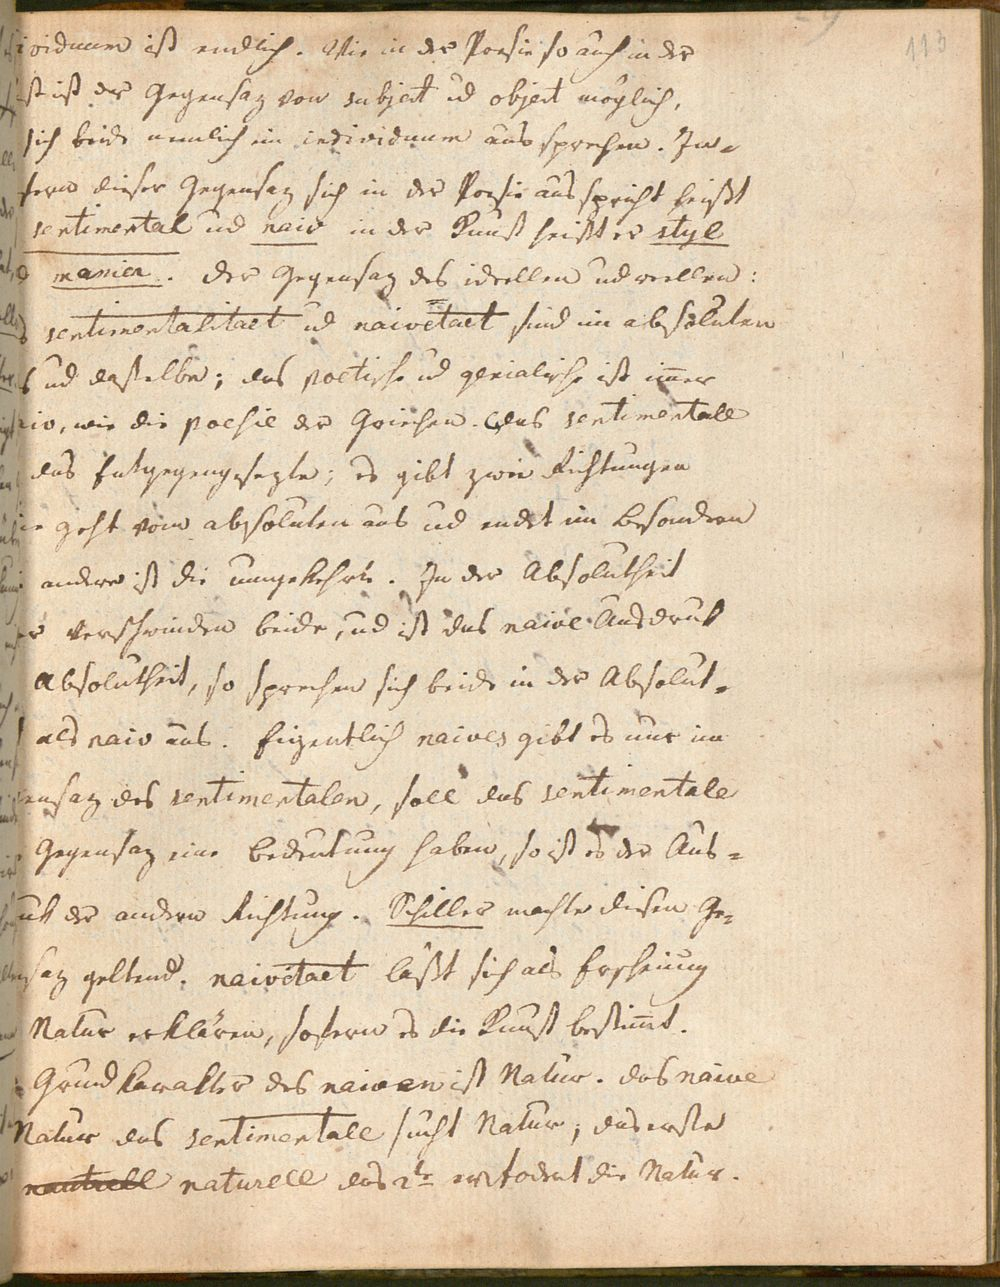 113
ividuum ist endlich. Wie in der Poesie so auch in der
st ist der Gegensaz von subject ud object möglich,
sich beide nemlich im individuum aussprechen. In-
fern dieser Gegensaz sich in der Poesie ausspricht heißt
sentimental ud naiv in der Kunst heißt er styl
manier. Der Gegensaz des ideellen ud reellen:
sentimentalitaet ud naivetaet sind im absoluten
s ud dasselbe; das poetische ud genialische ist imer
iv, wie die poesie der Griechen. das sentimentale
das Entgegengesezte; es gibt zwei Richtungen
ie geht vom absoluten aus ud endet im besondern
andere ist die umgekehrte. In der Absolutheit
er verschwinden beide, ud ist das naive Ausdruk
Absolutheit, so sprechen sich beide in der Absolut-
als naiv aus. Eigentlich naives gibt es nur im
ensaz des sentimentalen, soll das sentimentale
Gegensaz eine bedeutung haben, so ist es der Aus-
uk der andern Richtung. Schiller machte diesen Ge-
saz geltend. naivetaet läßt sich als Erscheinung
Natur erklären, sofern es die Kunst bestimt.
Grundkarakter des naiven ist Natur. das naive
Natur das sentimentale sucht Natur; das erste
naturell das 2te ertödet die Natur.